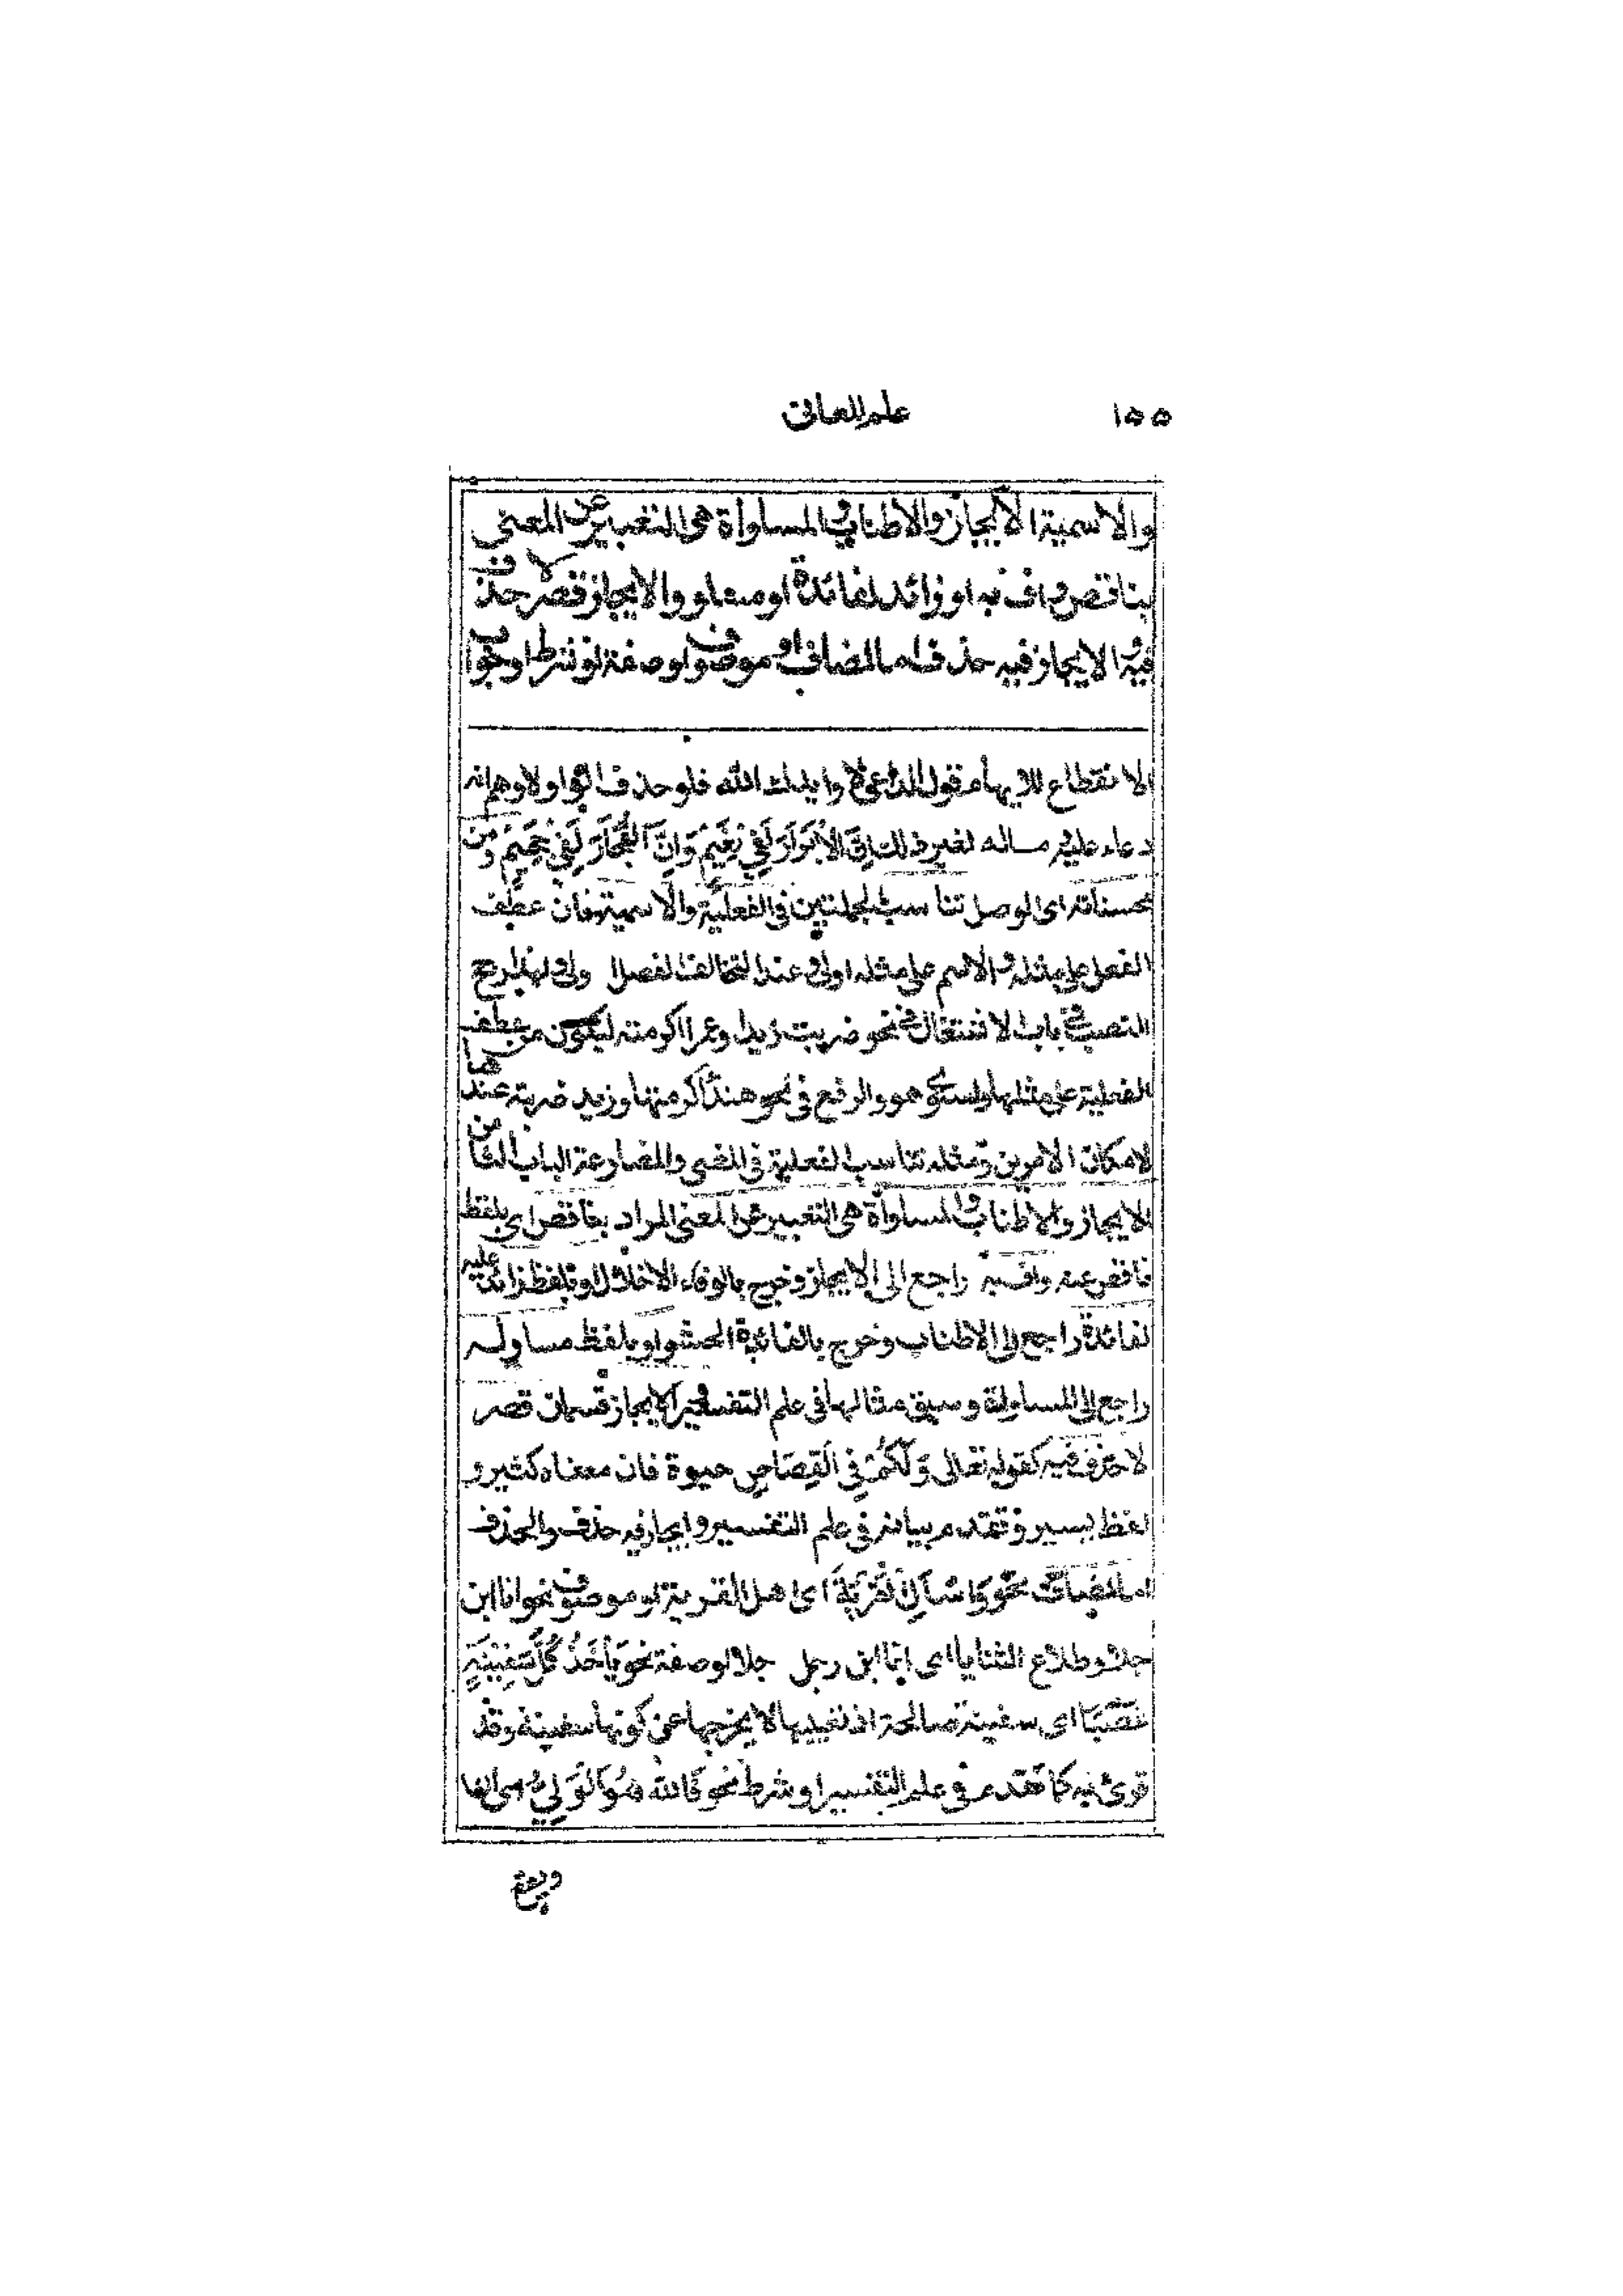 ١٥٥ علم المعانى
والاسمية الايجاز والاطناب والمساواة هى التعبير عن المعنى
بناقص واف به او زائد لفائدة او مساو والايجاز قصر لا حذف
فيه والايجاز فيه حذف اما لمضاف او موصوف او صفة او شرط او جواب
الانقطاع للايهام قول الداعى لا وايدك الله فلو حذف الواو لاوهم انه
دعاء عليه مساله لغير ذلك اِنَّ الْاَبْرَارَ لَفِىْ نَعِيْمٍ وَاِنَّ الْفُجَّارَ لَفِىْ جَحِيْمٍ ومن
محسناته اى الوصل تناسب الجملتين فى الفعلية والاسمية فان عطف
الفعل على مثله والاسم على مثله اولى وعند التخالف الفصل اولى ولهذا رجح
النصب فى باب الاشتغال فى نحو ضربت زيدا وعمرا اكرمته ليكون من عطف
الفعلية على مثلها واستوى هو والرفع فى نحو هند اكرمتها وزيد ضربته عندها
لامكان الامرين ومثله تناسب الفعلية فى المضى والمضارعة الباب الثامن
الايجاز والاطناب والمساواة هى التعبير عن المعنى المراد بناقص اى بلفظ
ناقص عنه واف به راجع الى الايجاز وخرج بالوفاء الاخلال او بلفظ زائد عليه
لفائدة راجع الى الاطناب وخرج بالفائدة الحشو او بلفظ مساو له
راجع الى المساواة وسبق مثالها فى علم التفسير والايجاز قسمان قصر
لا حذف فيه كقوله تعالى وَلَكُمْ فِى الْقِصَاصِ حيوة فان معناه كثير و
لفظ يسير وتقدم بيانه فى علم التفسير وايجاز فيه حذف والحذف
اما لمضاف نحو وَاسْاَلِ الْقَرْيَةَ اى اهل القرية او موصوف نحو انا ابن
جلا وطلاع الثنايا اى انا ابن رجل جلا او صفة نحو يَأْخُذُ كُلَّ سَفِيْنَةٍ
غَصْبًا اى سفينة صالحة اذ تعييبها لا يخرجها عن كونها سفينة وقد
قرئ به كما تقدم فى علم التفسير او شرط نحو فَاللهُ هُوَ الْوَلِىُّ اى ان